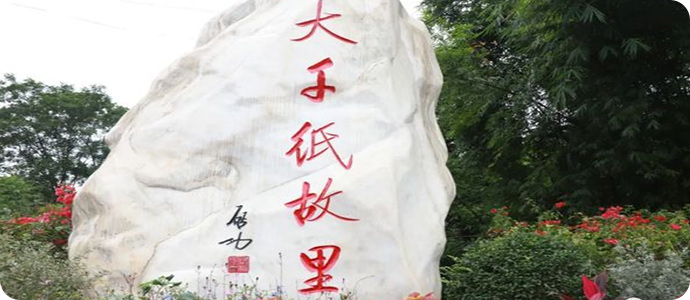 大千纸故里
启功